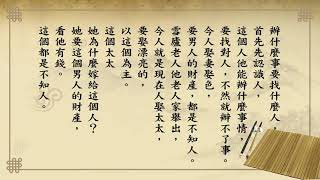 辦什麼事要找什麼人，
首先先認識人，
這個人他能辦什麼事情，
要找對人，不然就辦不了事。
今人娶妻娶色，
要男人的財產，都是不知人。
雪廬老人他老人家舉出，
今人就是現在人娶太太，
要娶漂亮的，
以這個為主。
這個太太
她為什麼嫁給這個人？
她要這個男人的財產，
看他有錢。
這個都是不知人。